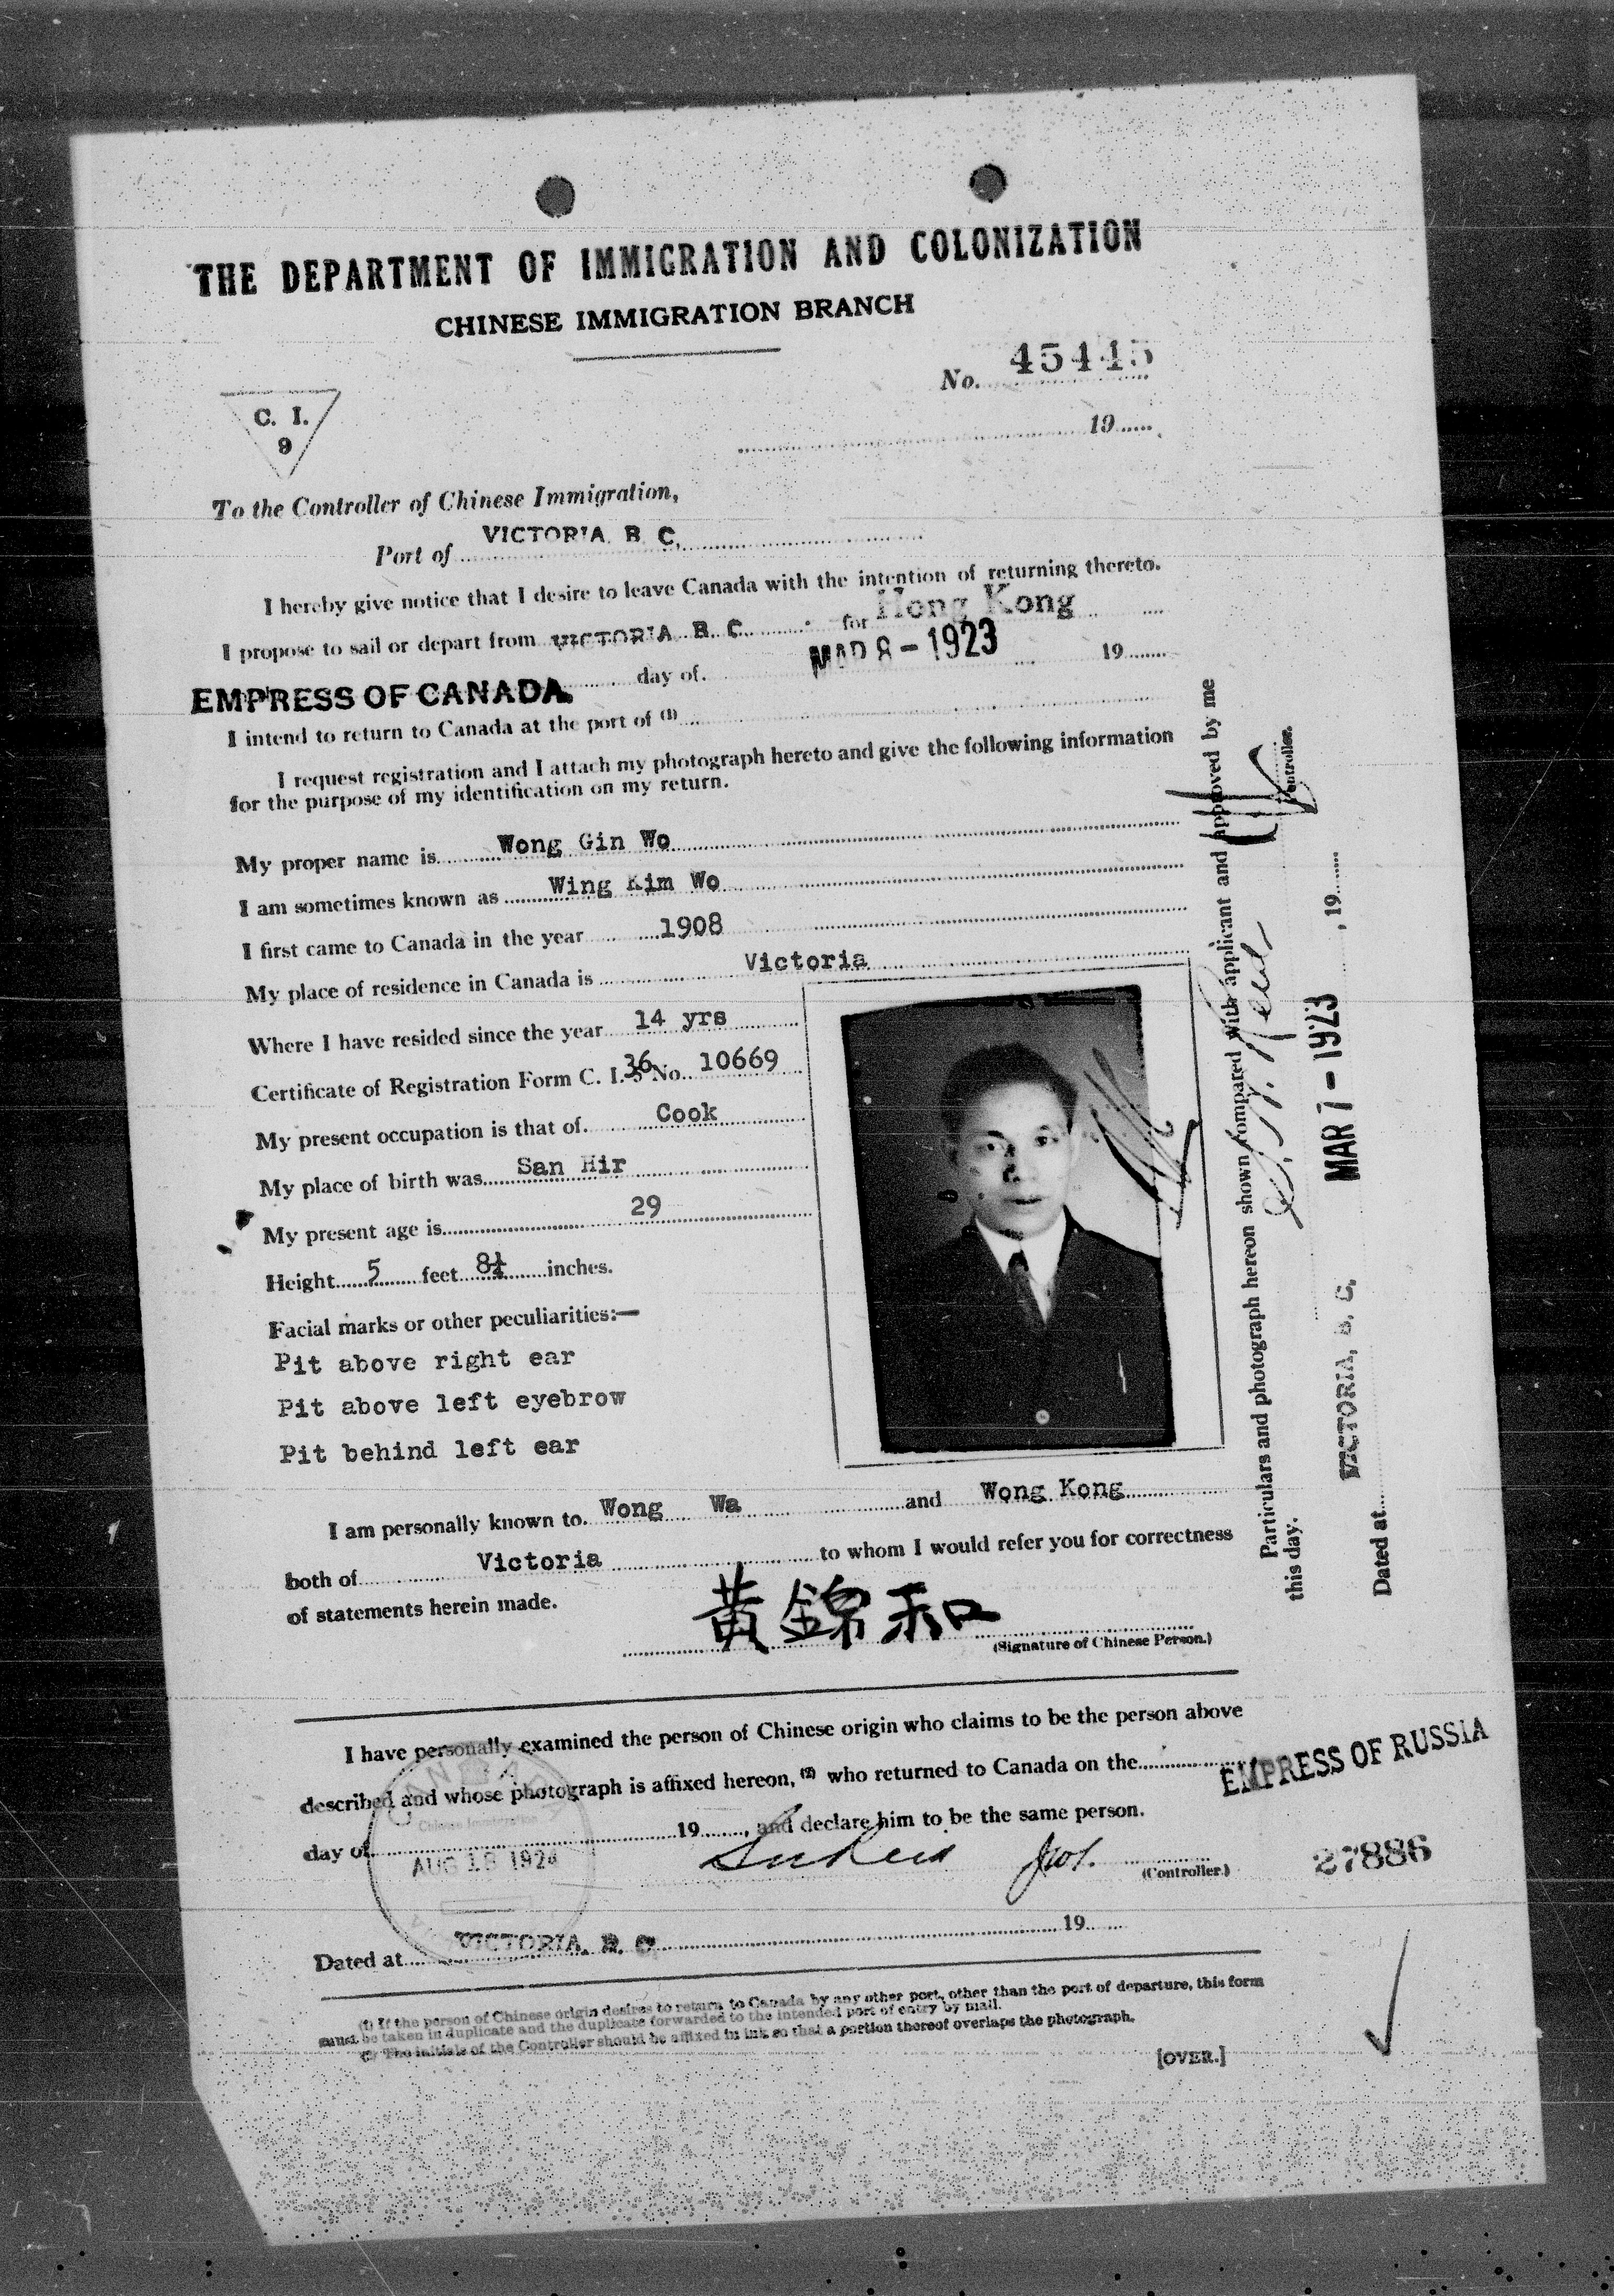 THE DEPARTMENT OF IMMIGRATION AND COLONIZATION
CHINESE IMMIGRATION BRANCH
No. 45445
19
C. I.
9
To the Controller of Chinese Immigration,
Port of VICTORIA B C.
I hereby give notice that I desire to leave Canada with the intention of returning thereto.
I propose to sail or depart from VICTORIA B. C. for Hong Kong
EMPRESS OF CANADA day of MAR 8 - 1923 19
I intend to return to Canada at the port of (1)
I request registration and I attach my photograph hereto and give the following information
for the purpose of my identification on my return.
My proper name is Wong Gin Wo
I am sometimes known as Wing Kim Wo
I first came to Canada in the year 1908
My place of residence in Canada is Victoria
Where I have resided since the year 14 yrs
Certificate of Registration Form C. I. 5 36 No. 10669
My present occupation is that of Cook
My place of birth was San Hir
My present age is 29
Height 5 feet 8½ inches.
Facial marks or other peculiarities:—
Pit above right ear
Pit above left eyebrow
Pit behind left ear
I am personally known to Wong Wa and Wong Kong
both of Victoria to whom I would refer you for correctness
of statements herein made.
黃錦和
(Signature of Chinese Person.)
Particulars and photograph hereon shown compared with applicant and approved by me
this day.
Controller.
Dated at VICTORIA, B. C. MAR 7 - 1923, 19
I have personally examined the person of Chinese origin who claims to be the person above
described and whose photograph is affixed hereon, (2) who returned to Canada on the
EMPRESS OF RUSSIA
day of 19, and declare him to be the same person.
Chinese Immigration
AUG 18 1924
(Controller.)
27886
Dated at VICTORIA, B. C. 19
(1) If the person of Chinese origin desires to return to Canada by any other port, other than the port of departure, this form
must be taken in duplicate and the duplicate forwarded to the intended port of entry by mail.
(2) The initials of the Controller should be affixed in ink so that a portion thereof overlaps the photograph.
[OVER.]